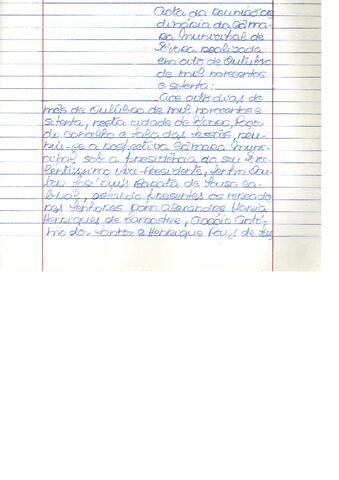 Acta da Reunião or
dinária da Câma-
ra municipal de
Évora realizada
em oito de Outubro
de mil novecentos
e setenta:
Aos oito dias do
mês de Outubro de mil novecentos e
setenta, nesta cidade de Évora, Paços
do Concelho e sala das sessões, reu-
niu-se a respectiva Câmara muni-
cipal sob a presidência do seu Exce-
lentíssimo vice-Presidente, Senhor Dou-
tor José Luis Barata de Sousa Ca-
bral, estando presentes os vereado
res Senhores Dom Alexandre Maria
Henriques de Lancastre, António
dos Santos e Henrique Pais de